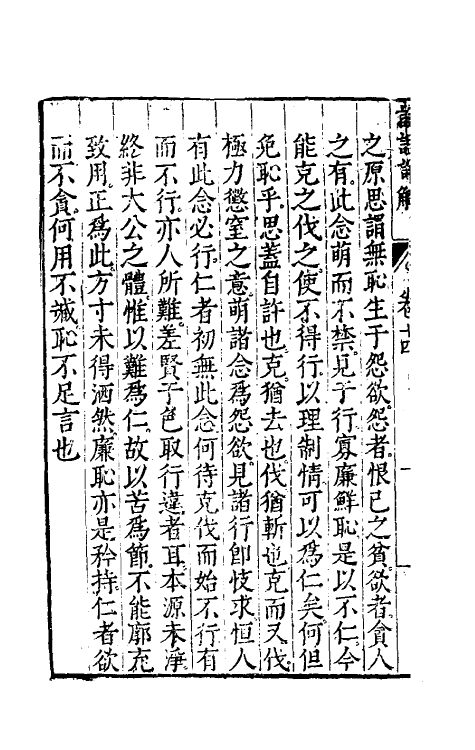 論語詳解
卷十四
之原思謂無恥生于怨欲怨者恨已之貧欲者貪人
之有此念萌而不禁見于行寡廉鮮恥是以不仁今
能克之伐之使不得行以理制情可以爲仁矣何但
免恥乎思蓋自許也克猶去也伐猶斬也克而又伐
極力懲窒之意萌諸念爲怨欲見諸行卽忮求恒人
有此念必行仁者初無此念何待克伐而始不行有
而不行亦人所難差賢于色取行違者耳本源未淨
終非大公之體惟以難爲仁故以苦爲節不能廓充
致用正爲此方寸未得洒然廉恥亦是矜持仁者欲
而不貪何用不臧恥不足言也